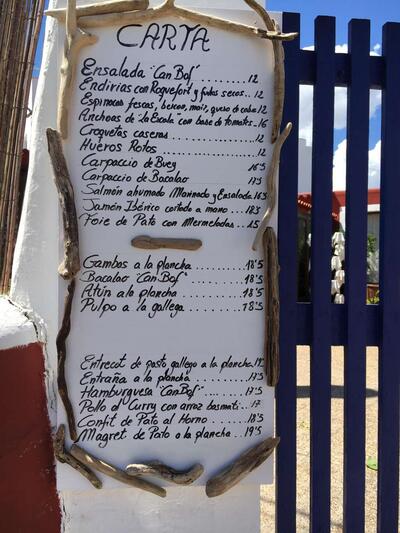 CARTA
Ensalada "Can Bof" ........ 12
Endivias con Roquefort y frutos secos.. 12
Espinacas fescas, beicon, maiz, queso de cabra 12
Anchoas de "la Escala" con base de tomates.. 16
Croquetas caseras ............ 12
Hueros Rotos ............ 12
Carpaccio de Buey 16'5
Carpaccio de Bacalao 17'5
Salmón ahumado Marinado y Ensalada 16'5
Jamón Ibérico cortado a mano ... 18'5
Foie de Pato con Mermeladas .. 15
Gambas a la plancha .......... 18'5
Bacalao "Can Bof" .......... 18'5
Atún a la plancha .......... 18'5
Pulpo a la gallega .......... 18'5
Entrecot de pasto gallego a la plancha.
Entraña a la plancha ........ 17'5
Hamburguesa "Can Bof" ...... 17'5
Pollo al Curry con arroz basmati .. 17
Confit de Pato al Horno ...... 18'5
Magret de Pato a la plancha ... 19'5